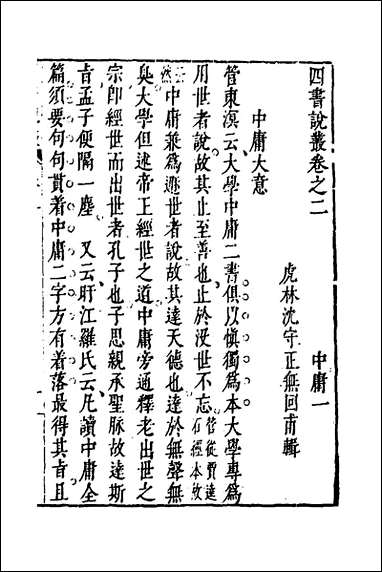 四書說叢卷之二
虎林沈守正無回甫輯
中庸一
中庸大意
管東溟云大學中庸二書俱以慎獨爲本大學專爲
用世者說故其止至善也止於没世不忘管從賈逵石經本故
云然中庸兼爲遯世者說故其達天德也達於無聲無
臭大學但述帝王經世之道中庸旁通釋老出世之
宗卽經世而出世者孔子也子思親承聖脉故達斯
旨孟子便隔一塵 又云盱江羅氏云凡讀中庸全
篇須要句句貫着中庸二字方有着落最得其旨且